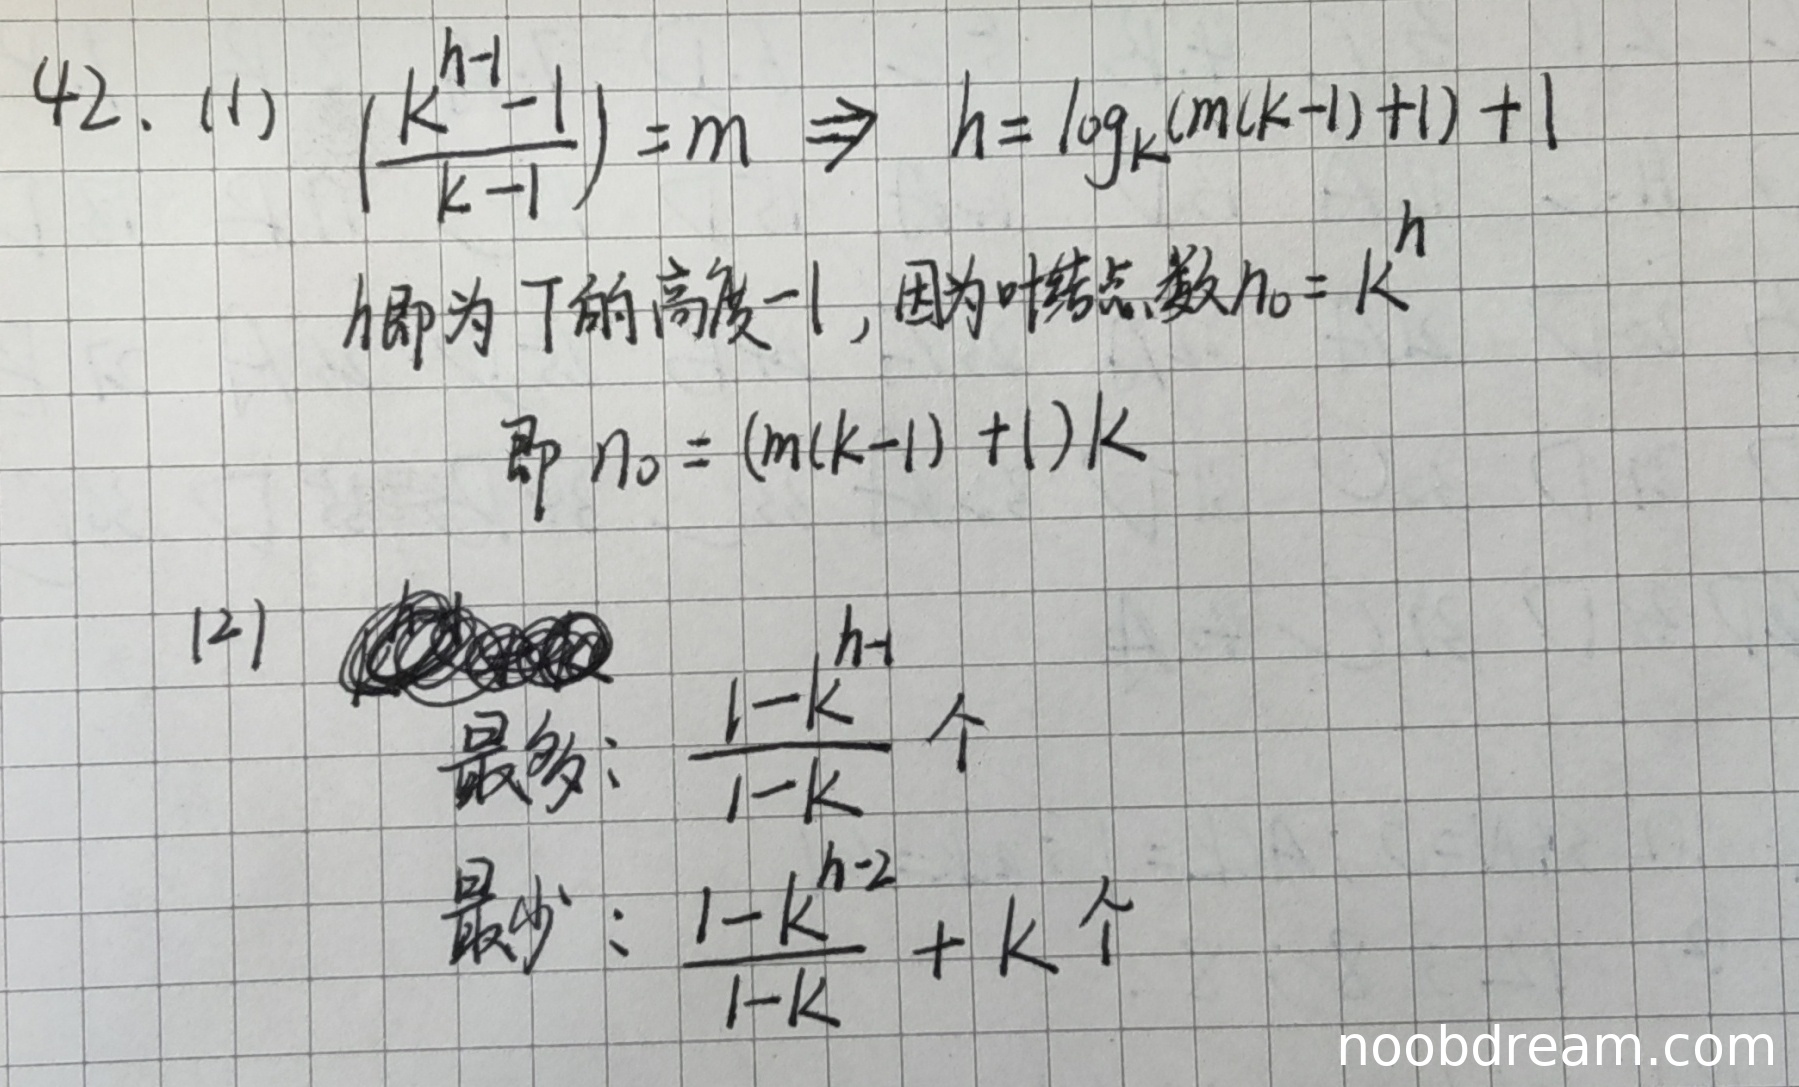 42. (1) (\frac{k^{h-1}-1}{k-1}) = m ⇒ h = log_k(m(k-1)+1)+1
h即为T的高度-1, 因为叶结点数n₀ = k^h
即 n₀ = (m(k-1)+1)k
(2)
最多: \frac{1-k^{h-1}}{1-k} 个
最少: \frac{1-k^{h-2}}{1-k} + k 个
noobdream.com